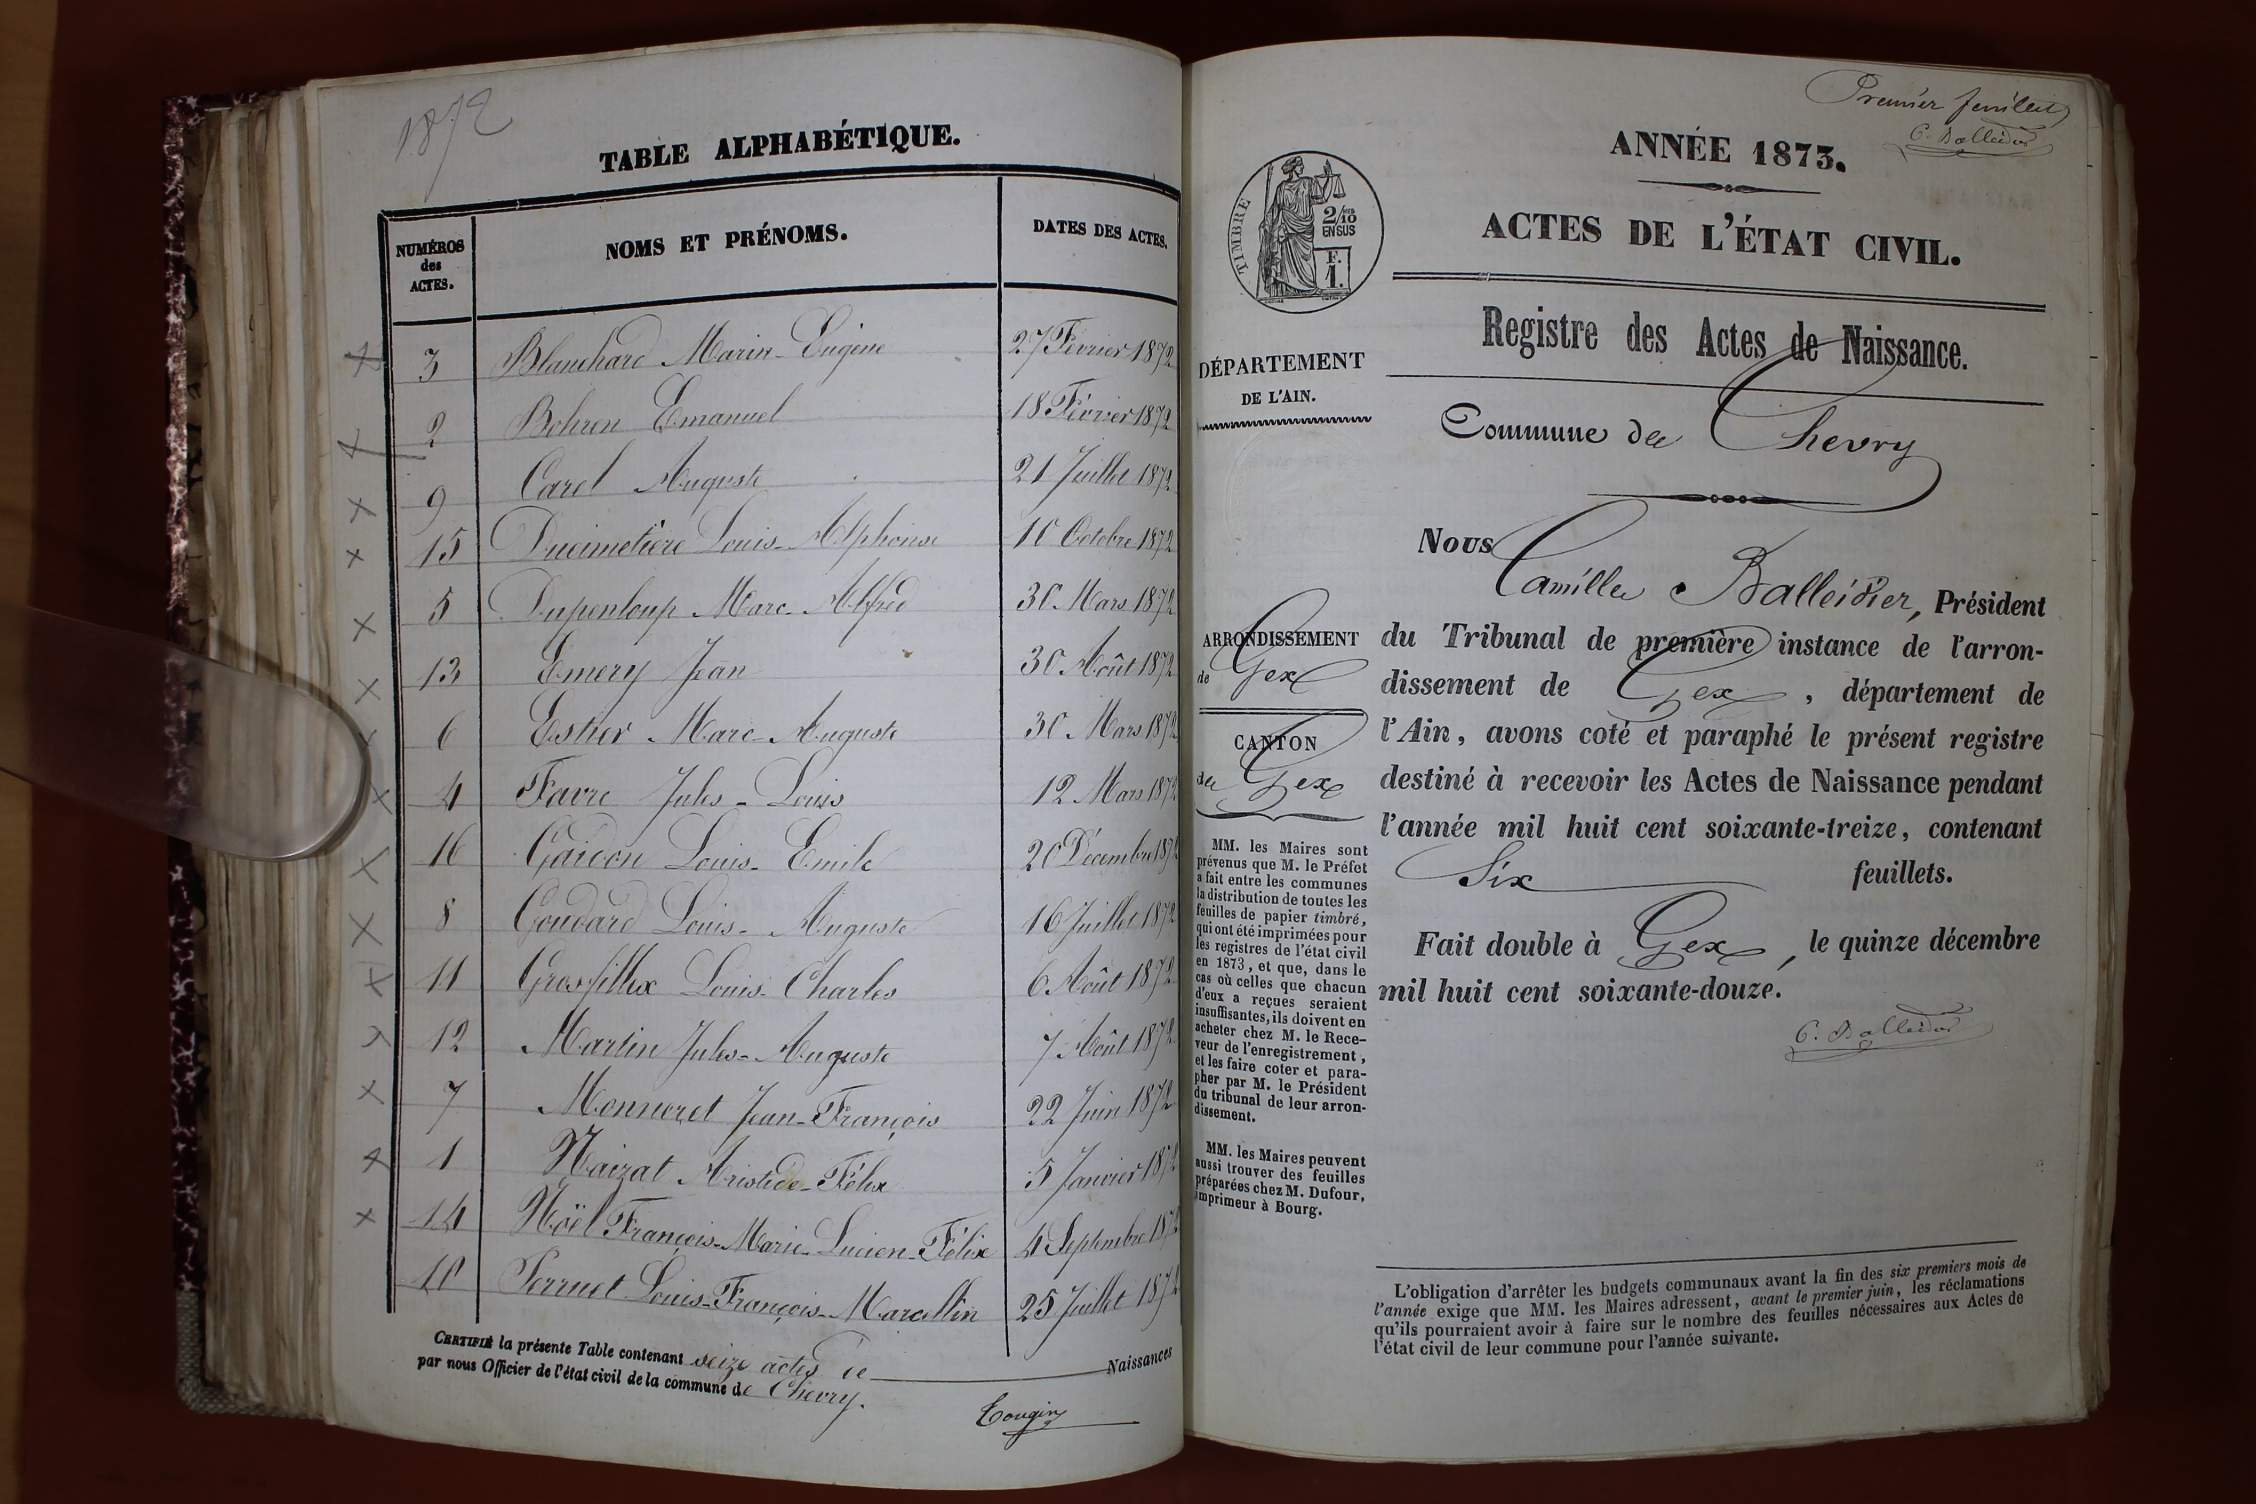 1872
TABLE ALPHABÉTIQUE.
NUMÉROS
des
ACTES.
NOMS ET PRÉNOMS.
DATES DES ACTES.
3 Blanchard Marin-Eugène 27 Février 1872
2 Bohren Emanuel 18 Février 1872
9 Carel Auguste 21 Juillet 1872
15 Ducimetière Louis-Alphonse 10 Octobre 1872
5 Dupenloup Marc-Alfred 30 Mars 1872
13 Emery Jean 30 Août 1872
6 Estier Marc-Auguste 30 Mars 1872
4 Favre Jules-Louis 12 Mars 1872
16 Gaidon Louis-Emile 20 Décembre 1872
8 Goudard Louis-Auguste 16 Juillet 1872
11 Grosfillex Louis-Charles 6 Août 1872
12 Martin Jules-Auguste 7 Août 1872
7 Monneret Jean-François 22 Juin 1872
1 Naizat Aristide-Félix 5 Janvier 1872
14 Noël François-Marie-Lucien-Félix 4 Septembre 1872
10 Perruet Louis-François-Marcellin 25 Juillet 1872
CERTIFIÉ la présente Table contenant seize actes de Naissances
par nous Officier de l'état civil de la commune de Chevry.
Tougin
Premier feuillet
C. Balleidier
ANNÉE 1873.
ACTES DE L'ÉTAT CIVIL.
TIMBRE
2/10
EN SUS
F.
1.
Registre des Actes de Naissance.
DÉPARTEMENT
DE L'AIN.
Commune de Chevry
ARRONDISSEMENT
de Gex
CANTON
de Gex
MM. les Maires sont
prévenus que M. le Préfet
a fait entre les communes
la distribution de toutes les
feuilles de papier timbré,
qui ont été imprimées pour
les registres de l'état civil
en 1873, et que, dans le
cas où celles que chacun
d'eux a reçues seraient
insuffisantes, ils doivent en
acheter chez M. le Rece-
veur de l'enregistrement,
et les faire coter et para-
pher par M. le Président
du tribunal de leur arron-
dissement.
MM. les Maires peuvent
aussi trouver des feuilles
préparées chez M. Dufour,
imprimeur à Bourg.
Nous Camille Balleidier, Président
du Tribunal de première instance de l'arron-
dissement de Gex, département de
l'Ain, avons coté et paraphé le présent registre
destiné à recevoir les Actes de Naissance pendant
l'année mil huit cent soixante-treize, contenant
Six feuillets.
Fait double à Gex, le quinze décembre
mil huit cent soixante-douze.
C. Balleidier
L'obligation d'arrêter les budgets communaux avant la fin des six premiers mois de
l'année exige que MM. les Maires adressent, avant le premier juin, les réclamations
qu'ils pourraient avoir à faire sur le nombre des feuilles nécessaires aux Actes de
l'état civil de leur commune pour l'année suivante.